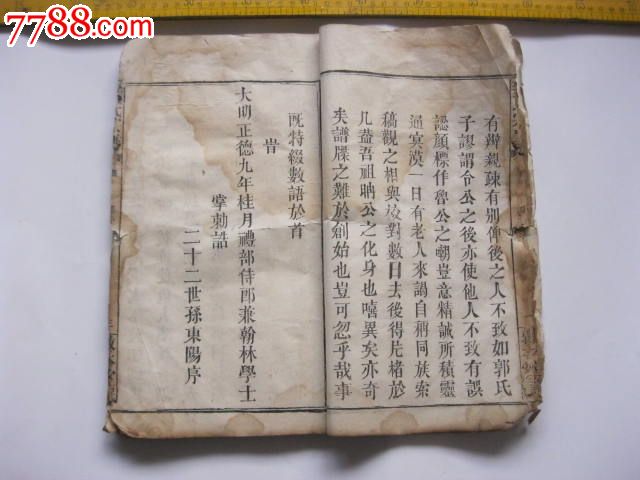 7788.com
有辨親疎有別俾後之人不致如郭氏
子謬謂令公之後亦使他人不致有誤
認顏標作魯公之嘲豈意精誠所積靈
通冥漠一日有老人來謁自稱同族索
稿觀之相與校對數日去後得片楮於
几蓋吾祖聃公之化身也嘻異矣亦奇
矣譜牒之難於創始也豈可忽乎哉事
既特綴數語於首
旹
大明正德九年桂月禮部侍郎兼翰林學士
掌勅誥
二十二世孫東陽序